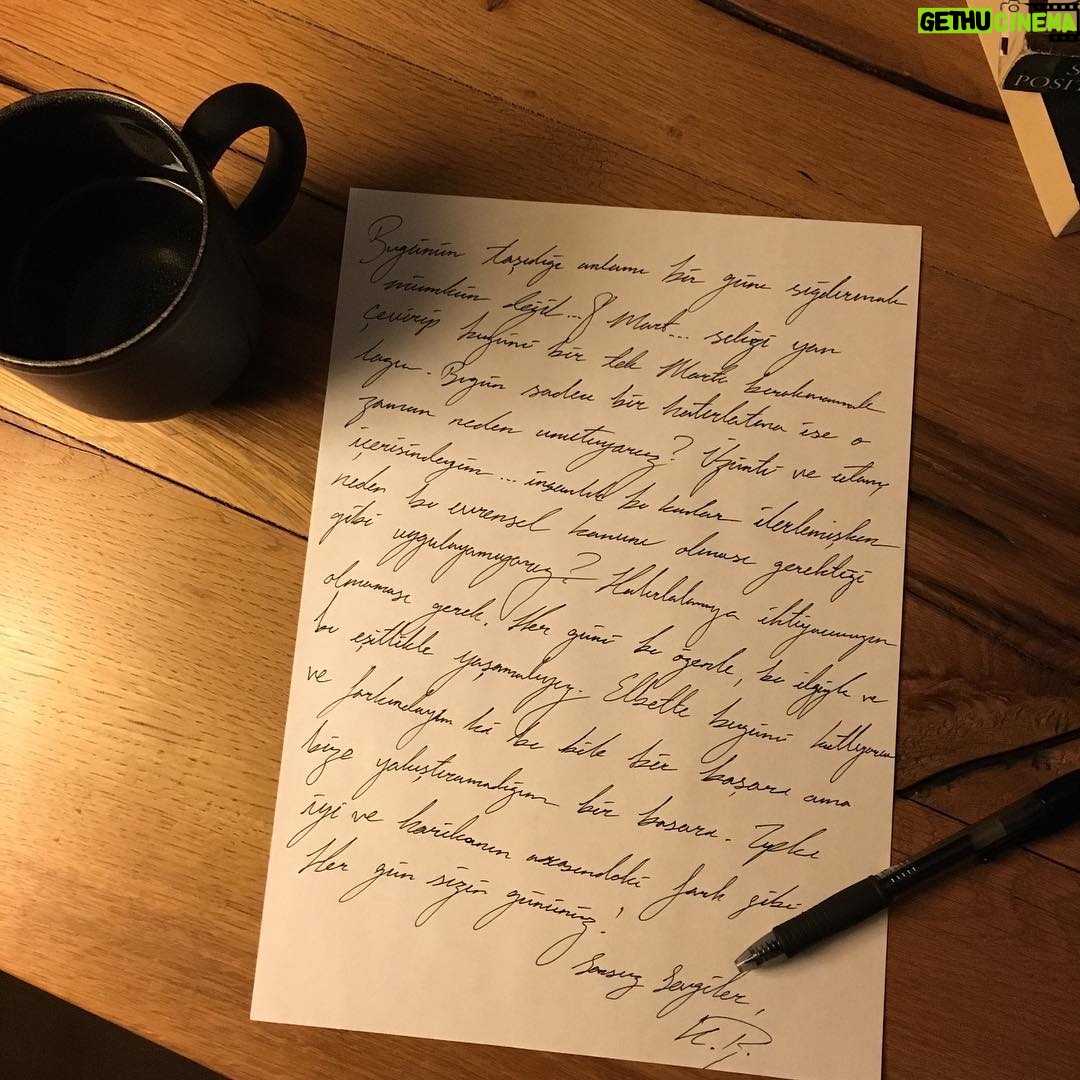 GETHUCINEMA
S
POSIT
Bugünün taşıdığı anlamı bir güne sığdırmak
mümkün değil... 8 Mart... sekizi yan
çevirip bugünü bir tek Martı bırakmamak
lazım. Bugün sadece bir hatırlatma ise o
zaman neden unutuyoruz? Üzüntü ve utanç
içerisindeyim... insanlık bu kadar ilerlemişken
neden bu evrensel kanunu olması gerektiği
gibi uygulayamıyoruz? Hatırlatmaya ihtiyacımızın
olmaması gerek. Her günü bu özenle, bu ilgiyle ve
bu eşitlikle yaşamalıyız. Elbette bugünü kutluyorum
ve farkındayım ki bu bile bir başarı ama
bize yakıştıramadığım bir başarı. Tıpkı
iyi ve harikanın arasındaki fark gibi
Her gün sizin gününüz!
Sonsuz Sevgiler,